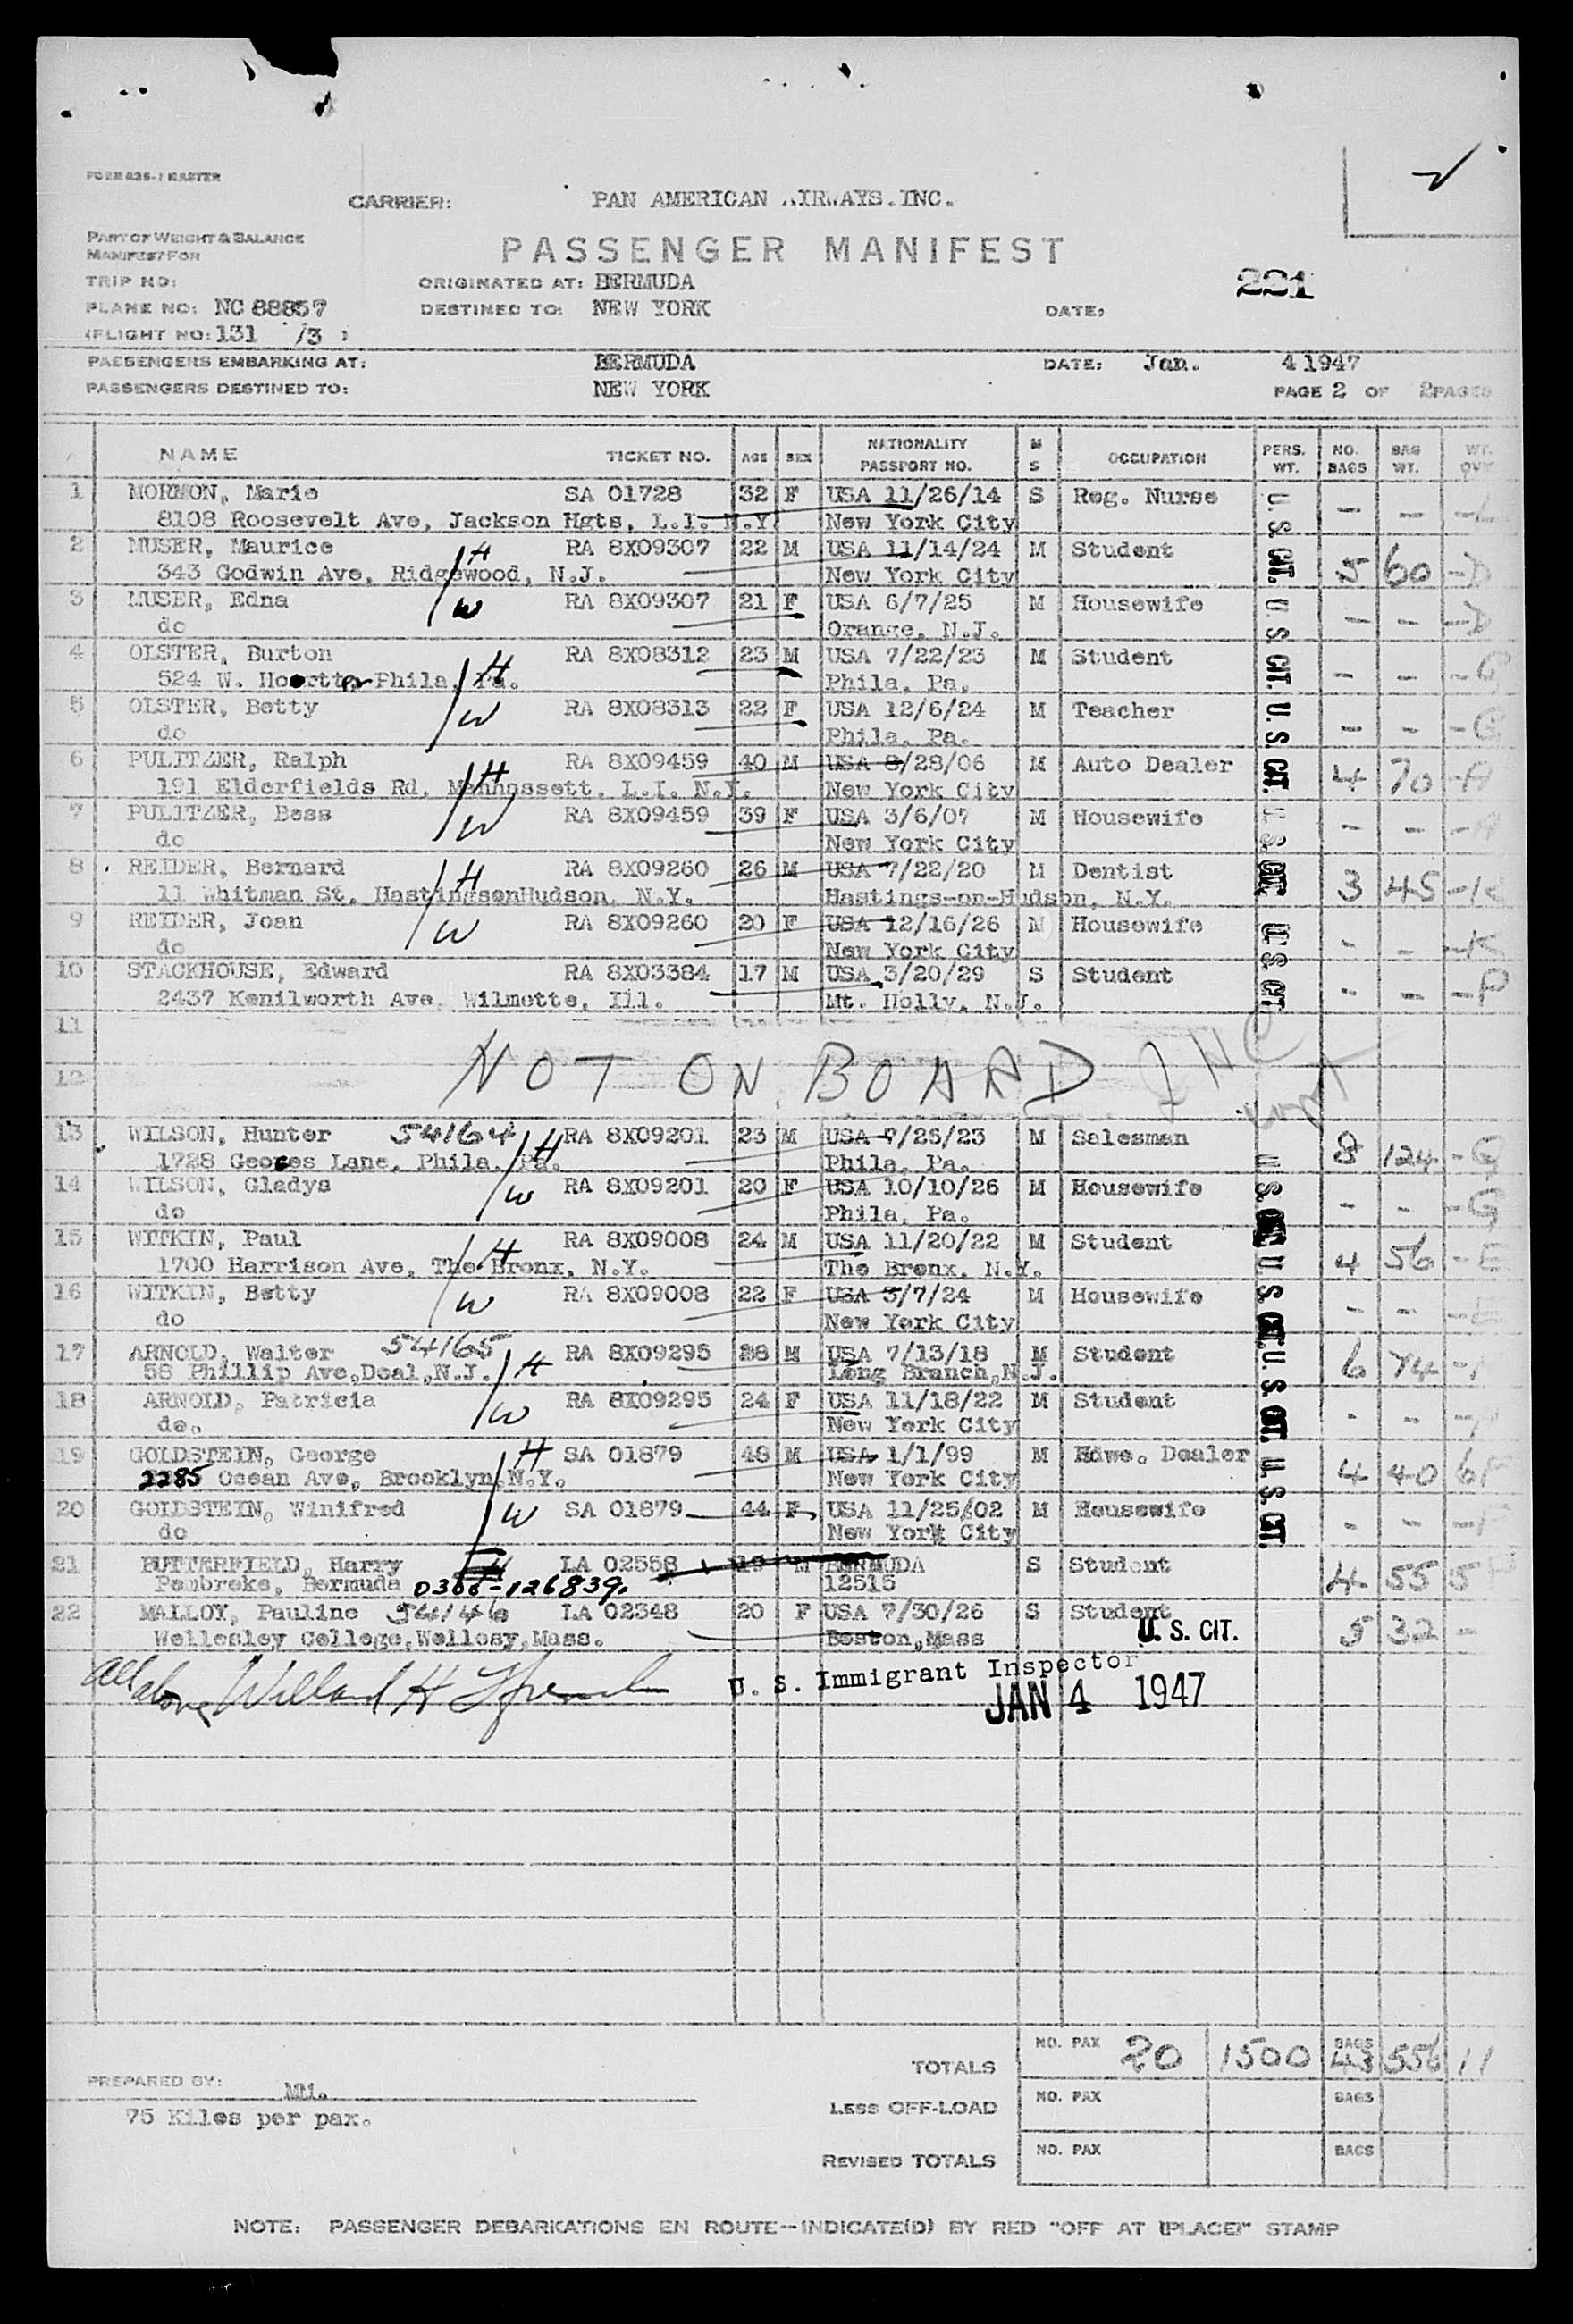 FORM 836-1 MASTER
CARRIER: PAN AMERICAN AIRWAYS.INC.
PART OF WEIGHT & BALANCE
MANIFEST FOR
PASSENGER MANIFEST
TRIP NO:
ORIGINATED AT: BERMUDA
221
PLANE NO: NC 88857
DESTINED TO: NEW YORK
DATE:
(FLIGHT NO: 131 /3 )
PASSENGERS EMBARKING AT: BERMUDA DATE: Jan. 4 1947
PASSENGERS DESTINED TO: NEW YORK PAGE 2 OF 2 PAGES
NAME TICKET NO. AGE SEX NATIONALITY PASSPORT NO. M S OCCUPATION PERS. WT. NO. BAGS BAG WT. WT.
1 MORMON, Marie SA 01728 32 F USA 11/26/14 S Reg. Nurse U. S. CIT. - - -L
8108 Roosevelt Ave, Jackson Hgts, L.I. N.Y. New York City
2 MUSER, Maurice H RA 8X09307 22 M USA 11/14/24 M Student 5 60 -D
343 Godwin Ave, Ridgewood, N.J. New York City
3 MUSER, Edna W RA 8X09307 21 F USA 6/7/25 M Housewife U. S. CIT. - - -D
do Orange, N.J.
4 OLSTER, Burton H RA 8X08312 23 M USA 7/22/23 M Student - - -G
524 W. Phila, Pa. Phila, Pa.
5 OLSTER, Betty W RA 8X08313 22 F USA 12/6/24 M Teacher U. S. CIT. - - -G
do Phila, Pa.
6 PULITZER, Ralph H RA 8X09459 40 M USA 8/28/06 M Auto Dealer 4 70 -A
191 Elderfields Rd, Manhassett, L.I. N.Y. New York City
7 PULITZER, Bess W RA 8X09459 39 F USA 3/6/07 M Housewife U. S. CIT. - - -A
do New York City
8 REIDER, Bernard H RA 8X09260 26 M USA 7/22/20 M Dentist 3 45 -K
11 Whitman St, HastingsonHudson, N.Y. Hastings-on-Hudson, N.Y.
9 REIDER, Joan W RA 8X09260 20 F USA 12/16/26 M Housewife U. S. CIT. - - -K
do New York City
10 STACKHOUSE, Edward RA 8X03384 17 M USA 3/20/29 S Student - - -P
2437 Kenilworth Ave, Wilmette, Ill. Mt. Holly, N.J.
11
NOT ON BOARD
12
13 WILSON, Hunter 54164 H RA 8X09201 23 M USA 9/26/23 M Salesman 8 124 -G
1728 Georges Lane, Phila, Pa. Phila, Pa.
14 WILSON, Gladys W RA 8X09201 20 F USA 10/10/26 M Housewife U. S. CIT. - - -G
do Phila, Pa.
15 WITKIN, Paul H RA 8X09008 24 M USA 11/20/22 M Student 4 56 -E
1700 Harrison Ave, The Bronx, N.Y. The Bronx, N.Y.
16 WITKIN, Betty W RA 8X09008 22 F USA 5/7/24 M Housewife U. S. CIT. - - -E
do New York City
17 ARNOLD, Walter 54165 H RA 8X09295 28 M USA 7/13/18 M Student 6 74 -
58 Phillip Ave,Deal,N.J. Long Branch,N.J.
18 ARNOLD, Patricia W RA 8X09295 24 F USA 11/18/22 M Student U. S. CIT. - - -
do. New York City
19 GOLDSTEIN, George H SA 01879 48 M USA 1/1/99 M Hdwe. Dealer 4 40 6F
2285 Ocean Ave, Brooklyn,N.Y. New York City
20 GOLDSTEIN, Winifred W SA 01879 44 F USA 11/25/02 M Housewife U. S. CIT. - - -F
do New York City
21 BUTTERFIELD, Harry LA 02558 19 M BERMUDA S Student 4 55 5
Pembroke, Bermuda 0366-126839. 12515
22 MALLOY, Pauline 54146 LA 02348 20 F USA 7/30/26 S Student 5 32 -
Wellesley College,Wellesy,Mass. Boston,Mass U. S. CIT.
All above Willard H U. S. Immigrant Inspector
JAN 4 1947
TOTALS NO. PAX 20 1500 BAGS 43 556 11
PREPARED BY: MM.
LESS OFF-LOAD NO. PAX BAGS
75 Kilos per pax.
REVISED TOTALS NO. PAX BAGS
NOTE: PASSENGER DEBARKATIONS EN ROUTE--INDICATE(D) BY RED "OFF AT (PLACE)" STAMP